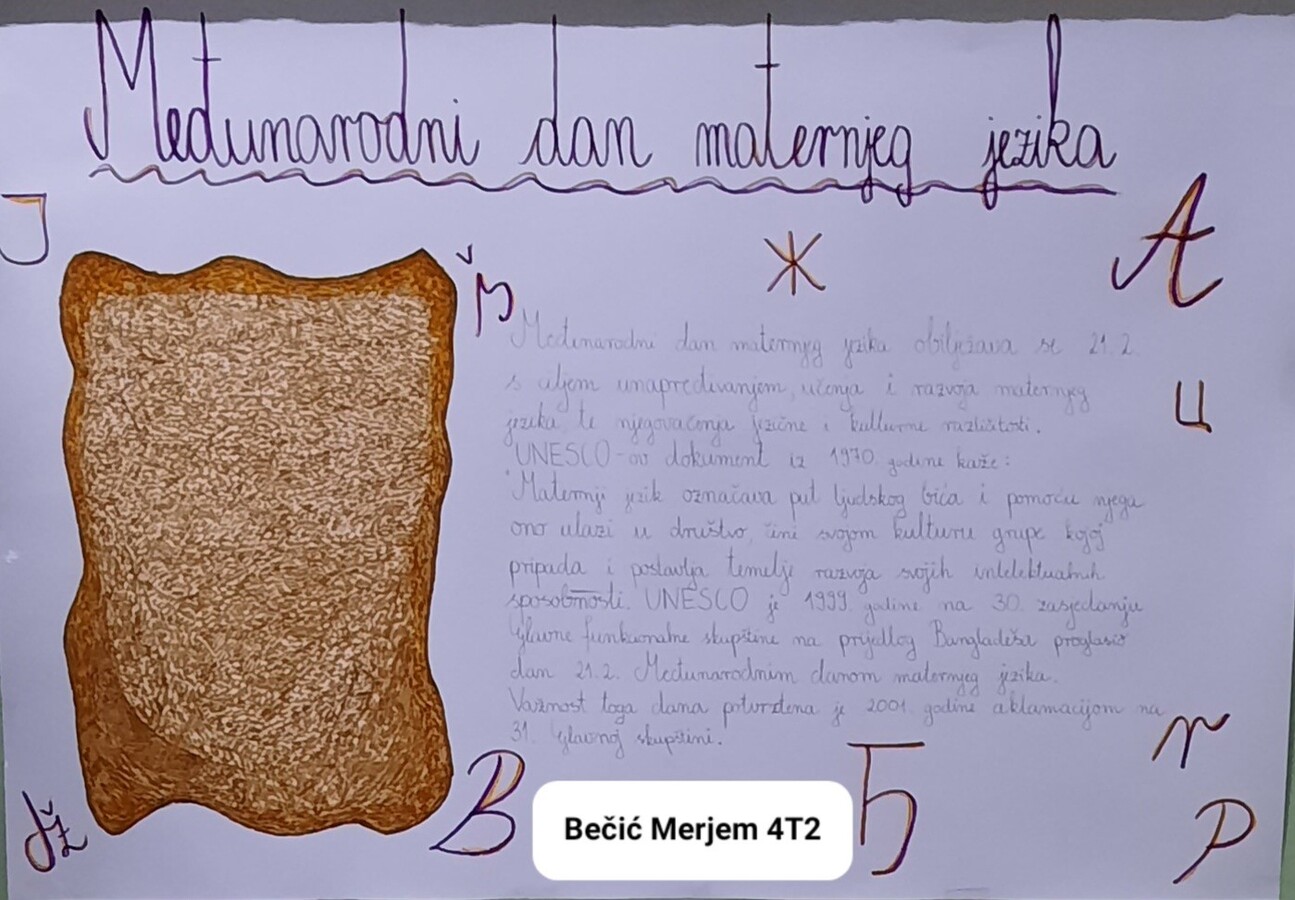 Međunarodni dan maternjeg jezika
J
Ž
А
š
Međunarodni dan maternjeg jezika obilježava se 21.2.
s ciljem unapređivanjem, učenja i razvoja maternjeg
ц
jezika te njegovaćenja jezične i kulturne različitosti.
UNESCO-ov dokument iz 1970. godine kaže:
"Maternji jezik označava put ljudskog bića i pomoću njega
ono ulazi u društvo, čini svojom kulturu grupe kojoj
pripada i postavlja temelje razvoja svojih intelektualnih
sposobnosti. UNESCO je 1999. godine na 30. zasjedanju
Glavne funkcionalne skupštine na prijedlog Bangladeša proglasio
dan 21.2. Međunarodnim danom maternjeg jezika.
Važnost toga dana potvrđena je 2001. godine aklamacijom na
31. Glavnoj skupštini.
r
dž
B
Ђ
P
Bečić Merjem 4T2